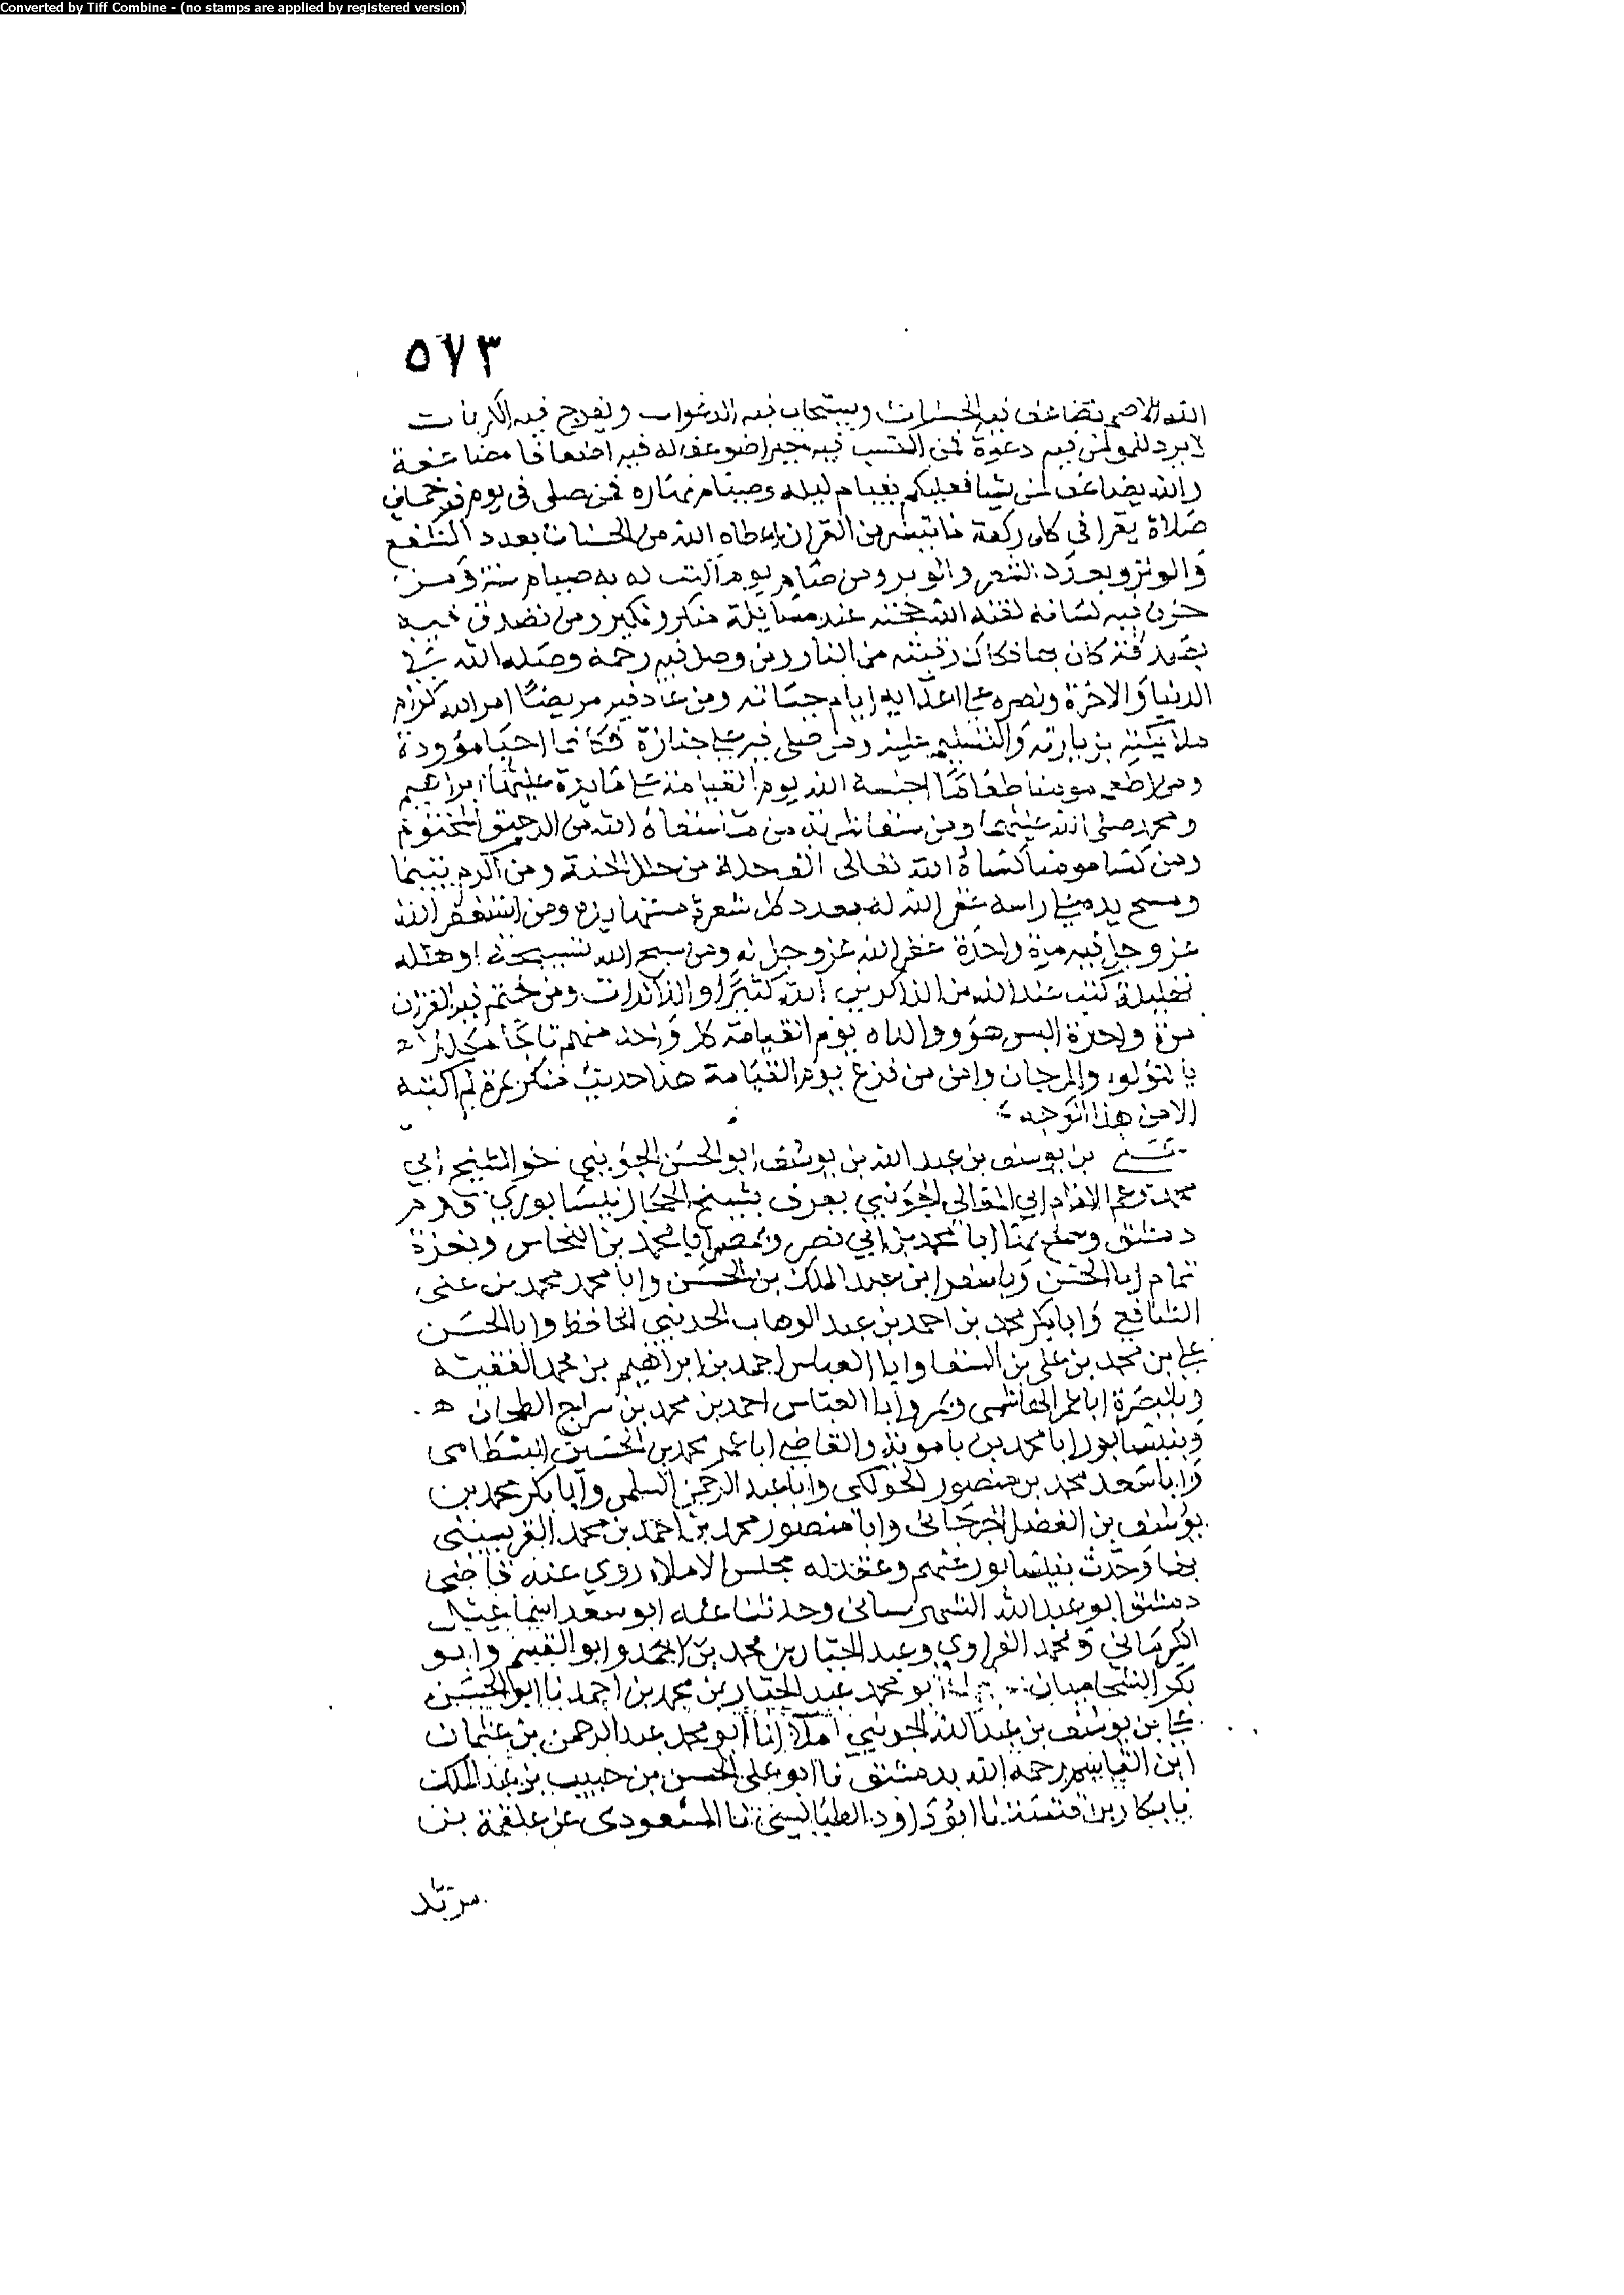 Converted by Tiff Combine - (no stamps are applied by registered version)
٥٧٣
الله الاصم تضاعف فيه الحسنات ويستجاب فيه الدعوات ويفرج فيه الكربات
لا يرد للمومن فيه دعوة فمن اكتسب فيه خيرا ضوعف له فيه اضعافا مضاعفة
والله يضاعف لمن يشا فعليكم بقيام ليله وصيام نهاره فمن صلى في يوم فيه خمسين
صلاة يقرا في كل ركعة ما تيسر من القران اعطاه الله من الحسنات بعدد الشفع
والوتر وبعدد الشعر والوبر ومن صام يوما كتب له به صيام سنة ومن
خزن فيه لسانه لقنه الله حجته عند مسايلة منكر ونكير ومن تصدق فيه
بصدقة كان بها فكاك رقبته من النار ومن وصل فيه رحمه وصله الله في
الدنيا والاخرة ونصره على اعدايه ايام حياته ومن عاد فيه مريضا امر الله كرام
ملايكته بزيارته والتسليم عليه ومن صلى فيه على جنازة فكانما احيا موودة
ومن اطعم مومنا طعاما اجلسه الله يوم القيامة على مايدة عليها ابراهيم
ومحمد صلى الله عليهما ومن سقا شربة من ما سقاه الله من الرحيق المختوم
ومن كسا مومنا كساه الله تعالى الف حلة من حلل الجنة ومن اكرم يتيما
ومسح يده على راسه غفر الله له بعدد كل شعرة مستها يده ومن استغفر الله
عز وجل فيه مرة واحدة غفر الله عز وجل له ومن سبح الله تسبيحة او هلله
تهليلة كتب عند الله من الذاكرين الله كثيرا والذاكرات ومن ختم فيه القران
مرة واحدة البس هو ووالداه يوم القيامة كل واحد منهم تاجا مكللا
باللولو والمرجان وامن من فزع يوم القيامة هذا حديث منكر بمرة لم اكتبه
الا من هذا الوجه
علي بن يوسف بن عبد الله بن يوسف ابو الحسن الجويني اخو الشيخ ابي
محمد وعم الامام ابي المعالي الجويني يعرف بشيخ الحجاز نيسابوري قدم
دمشق وسمع بها ابا محمد بن ابي نصر وبمصر ابا محمد بن النحاس وبغزة
تمام ابا الحسن وباسفراين عبد الملك بن الحسن وابا محمد محمد بن علي
الشافعي وابا بكر محمد بن احمد بن عبد الوهاب الحديثي الحافظ وابا الحسن
علي بن محمد بن علي بن السقا وابا العباس احمد بن ابراهيم بن محمد الفقيه
وبالبصرة ابا عمر الهاشمي وبمرو ابا العباس احمد بن محمد بن سراج الطحان ه
وبنيسابور ابا محمد بن بامويه والقاضي ابا عمر محمد بن الحسين البسطامي
وابا سعد محمد بن منصور الجولكي وابا عبد الرحمن السلمي وابا بكر محمد بن
يوسف بن الفضل الجرجاني وابا منصور محمد بن احمد بن محمد القرنيني
بها وحدث بنيسابور عنهم وعقد له مجلس الاملاء روى عنه قاضي
دمشق ابو عبد الله الشهرستاني وحدثنا عنه ابو سعد اسماعيل
الكرماني ومحمد الفراوي وعبد الجبار بن محمد بن احمد وابو القسم وابو
بكر الشحاميان ابو محمد عبد الجبار بن محمد بن احمد نا ابو الحسن
علي بن يوسف بن عبد الله الجويني املاء انا ابو محمد عبد الرحمن بن عثمان
ابن القاسم رحمه الله بدمشق نا ابو علي الحسن بن حبيب بن عبد الملك
نا بكار بن قتيبة نا ابو داود الطيالسي نا المسعودي عن علقمة بن
مرثد